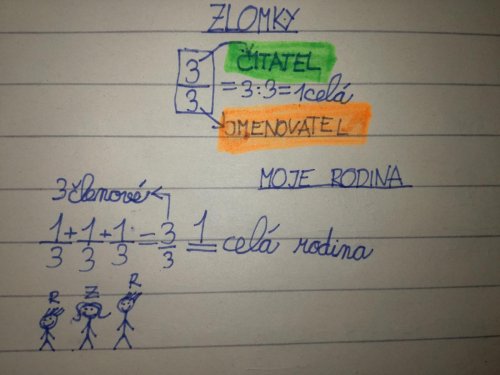 ZLOMKY
3 ČITATEL
3 = 3:3 = 1 celá
JMENOVATEL
MOJE RODINA
3 členové
1/3 + 1/3 + 1/3 = 3/3 = 1 celá rodina
R Z R